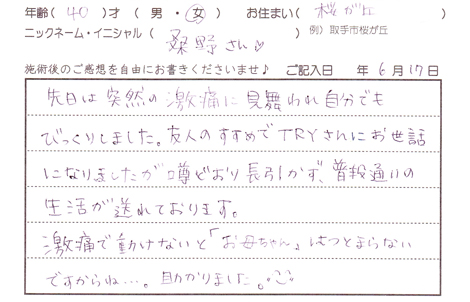 年齢( 40 )才 ( 男 ・ 女 ) お住まい( 桜が丘 )
ニックネーム・イニシャル( 桑野さん♡ ) 例）取手市桜が丘
施術後のご感想を自由にお書きくださいませ♪ ご記入日 年 6 月 17 日
先日は突然の激痛に見舞われ自分でも
びっくりしました。友人のすすめでTRYさんにお世話
になりましたが噂どおり長引かず、普段通りの
生活が送れております。
激痛で動けないと「お母ちゃん」はつとまらない
ですからね…。助かりました。